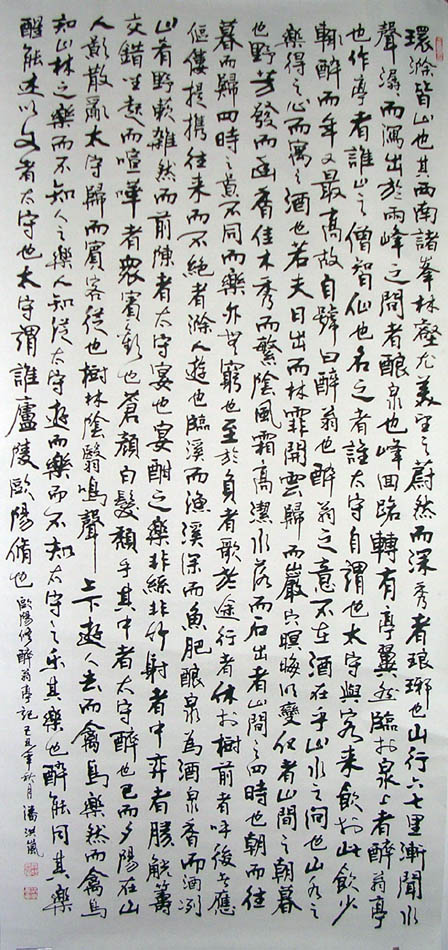 環滁皆山也其西南諸峯林壑尤美望之蔚然而深秀者琅琊也山行六七里漸聞水
聲潺而瀉出於兩峰之間者釀泉也峰回路轉有亭翼然臨於泉上者醉翁亭
也作亭者誰山之僧智仙也名之者誰太守自謂也太守與客來飲於此飲少
輒醉而年又最高故自號曰醉翁也醉翁之意不在酒在乎山水之间也山水之
樂得之心而寓之酒也若夫日出而林霏開雲歸而巖穴暝晦明變化者山間之朝暮
也野芳發而幽香佳木秀而繁陰風霜高潔水落而石出者山間之四時也朝而往
暮而歸四時之景不同而樂亦無窮也至於負者歌於途行者休於樹前者呼後者應
傴僂提攜往來而不絕者滁人遊也臨溪而漁溪深而魚肥釀泉為酒泉香而酒洌
山肴野蔌雜然而前陳者太守宴也宴酣之樂非絲非竹射者中弈者勝觥籌
交錯坐起而喧嘩者衆賓歡也蒼顏白髮頹乎其中者太守醉也已而夕陽在山
人影散亂太守歸而賓客從也樹林陰翳鳴聲上下遊人去而禽鳥樂然而禽鳥
知山林之樂而不知人之樂人知從太守遊而樂而不知太守之乐其樂也醉能同其樂
醒能述以文者太守也太守謂誰廬陵歐陽脩也
歐陽修醉翁亭記己丑年秋月潘洪嵐